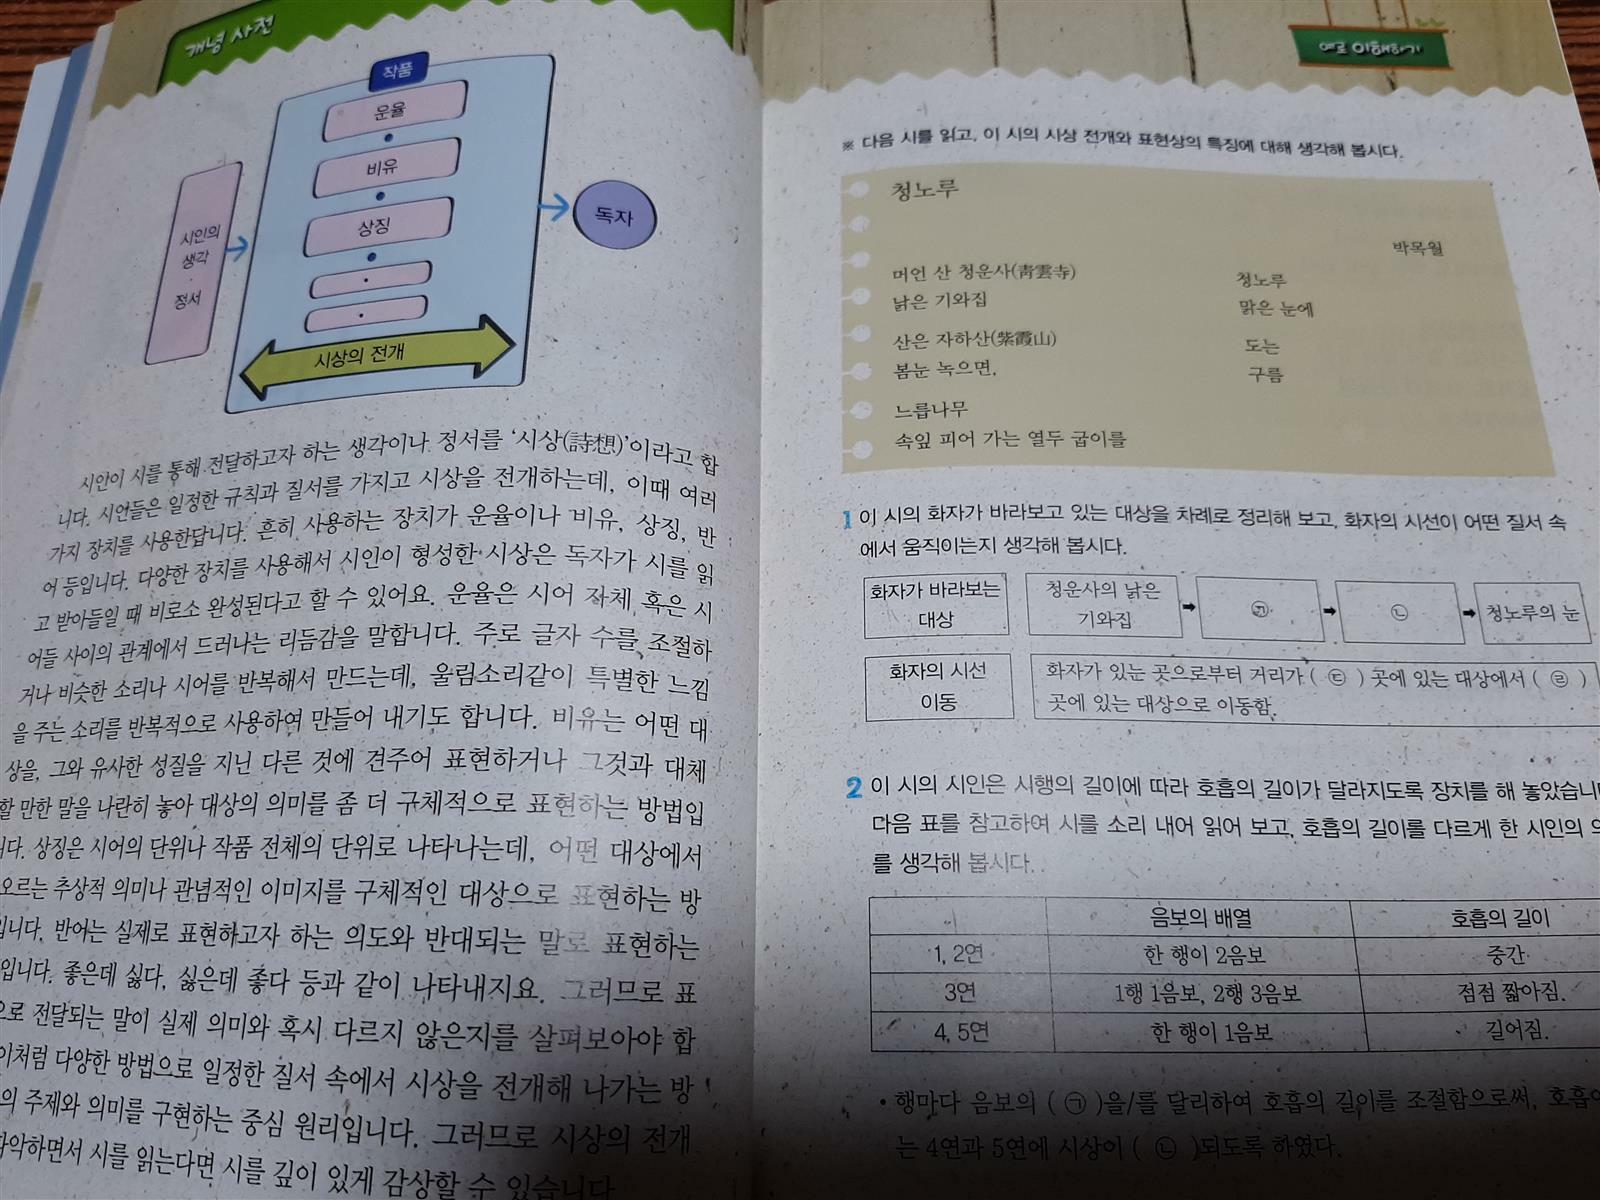 개념 사전
작품
운율
비유
상징
시인의
생각
·
정서
독자
시상의 전개
시인이 시를 통해 전달하고자 하는 생각이나 정서를 ‘시상(詩想)’이라고 합
니다. 시인들은 일정한 규칙과 질서를 가지고 시상을 전개하는데, 이때 여러
가지 장치를 사용한답니다. 흔히 사용하는 장치가 운율이나 비유, 상징, 반
어 등입니다. 다양한 장치를 사용해서 시인이 형성한 시상은 독자가 시를 읽
고 받아들일 때 비로소 완성된다고 할 수 있어요. 운율은 시어 자체 혹은 시
어들 사이의 관계에서 드러나는 리듬감을 말합니다. 주로 글자 수를 조절하
거나 비슷한 소리나 시어를 반복해서 만드는데, 울림소리같이 특별한 느낌
을 주는 소리를 반복적으로 사용하여 만들어 내기도 합니다. 비유는 어떤 대
상을, 그와 유사한 성질을 지닌 다른 것에 견주어 표현하거나 그것과 대체
할 만한 말을 나란히 놓아 대상의 의미를 좀 더 구체적으로 표현하는 방법입
니다. 상징은 시어의 단위나 작품 전체의 단위로 나타나는데, 어떤 대상에서
오르는 추상적 의미나 관념적인 이미지를 구체적인 대상으로 표현하는 방
입니다. 반어는 실제로 표현하고자 하는 의도와 반대되는 말로 표현하는
입니다. 좋은데 싫다, 싫은데 좋다 등과 같이 나타내지요. 그러므로 표
으로 전달되는 말이 실제 의미와 혹시 다르지 않은지를 살펴보아야 합
이처럼 다양한 방법으로 일정한 질서 속에서 시상을 전개해 나가는 방
의 주제와 의미를 구현하는 중심 원리입니다. 그러므로 시상의 전개
파악하면서 시를 읽는다면 시를 깊이 있게 감상할 수 있습니다
예로 이해하기
※ 다음 시를 읽고, 이 시의 시상 전개와 표현상의 특징에 대해 생각해 봅시다.
청노루
박목월
머언 산 청운사(靑雲寺)
낡은 기와집
산은 자하산(紫霞山)
봄눈 녹으면,
느릅나무
속잎 피어 가는 열두 굽이를
청노루
맑은 눈에
도는
구름
1 이 시의 화자가 바라보고 있는 대상을 차례로 정리해 보고, 화자의 시선이 어떤 질서 속
에서 움직이는지 생각해 봅시다.
화자가 바라보는
대상
청운사의 낡은
기와집
➡ ㉠ ➡ ㉡ ➡ 청노루의 눈
화자의 시선
이동
화자가 있는 곳으로부터 거리가 ( ㉢ ) 곳에 있는 대상에서 ( ㉣ )
곳에 있는 대상으로 이동함.
2 이 시의 시인은 시행의 길이에 따라 호흡의 길이가 달라지도록 장치를 해 놓았습니
다음 표를 참고하여 시를 소리 내어 읽어 보고, 호흡의 길이를 다르게 한 시인의
를 생각해 봅시다.
음보의 배열 호흡의 길이
1, 2연 한 행이 2음보 중간
3연 1행 1음보, 2행 3음보 점점 짧아짐.
4, 5연 한 행이 1음보 길어짐.
• 행마다 음보의 ( ㉠ )을/를 달리하여 호흡의 길이를 조절함으로써,
는 4연과 5연에 시상이 ( ㉡ )되도록 하였다.